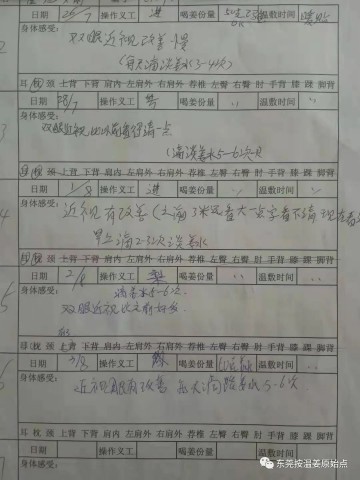 日期 25/7 操作义工 喝姜份量 温敷时间
身体感受:
双眼近视改善慢
(每天滴淡姜水3-4次)
耳 枕 颈 上背 下背 肩内 左肩外 右肩外 荐椎 左臀 右臀 肘 手背 膝 踝 脚背
日期 28/7 操作义工 喝姜份量 〃 温敷时间 〃
身体感受:
双眼近视比以前看得清一点
(滴淡姜水5-6次)
耳 枕 颈 上背 下背 肩内 左肩外 右肩外 荐椎 左臀 右臀 肘 手背 膝 踝 脚背
日期 1/8 操作义工 喝姜份量 〃 温敷时间 〃
身体感受:
近视有改善(之前3米远看大一点字看不清现在看
滴2-3次淡姜水
耳 枕 颈 上背 下背 肩内 左肩外 右肩外 荐椎 左臀 右臀 肘 手背 膝 踝 脚背
日期 2/8 操作义工 喝姜份量 〃 温敷时间 〃
身体感受:
滴姜水5-6次
双眼近视比之前好多
耳 枕 颈 上背 下背 肩内 左肩外 右肩外 荐椎 左臀 右臀 肘 手背 膝 踝 脚背
日期 3/8 操作义工 喝姜份量 温敷时间 〃
身体感受:
近视有改善 每天滴姜水5-6次
耳 枕 颈 上背 下背 肩内 左肩外 右肩外 荐椎 左臀 右臀 肘 手背 膝 踝 脚背
日期 操作义工 喝姜份量 温敷时间
身体感受:
东莞按温姜原始点